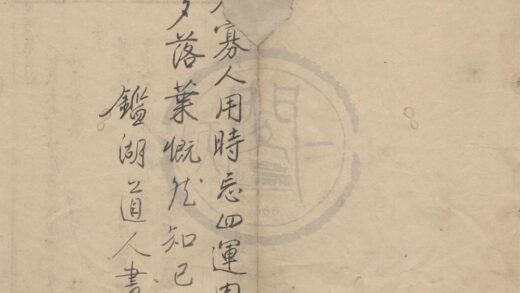 寡人用時忘四運周
多落葉慨然知已
鑑湖道人書